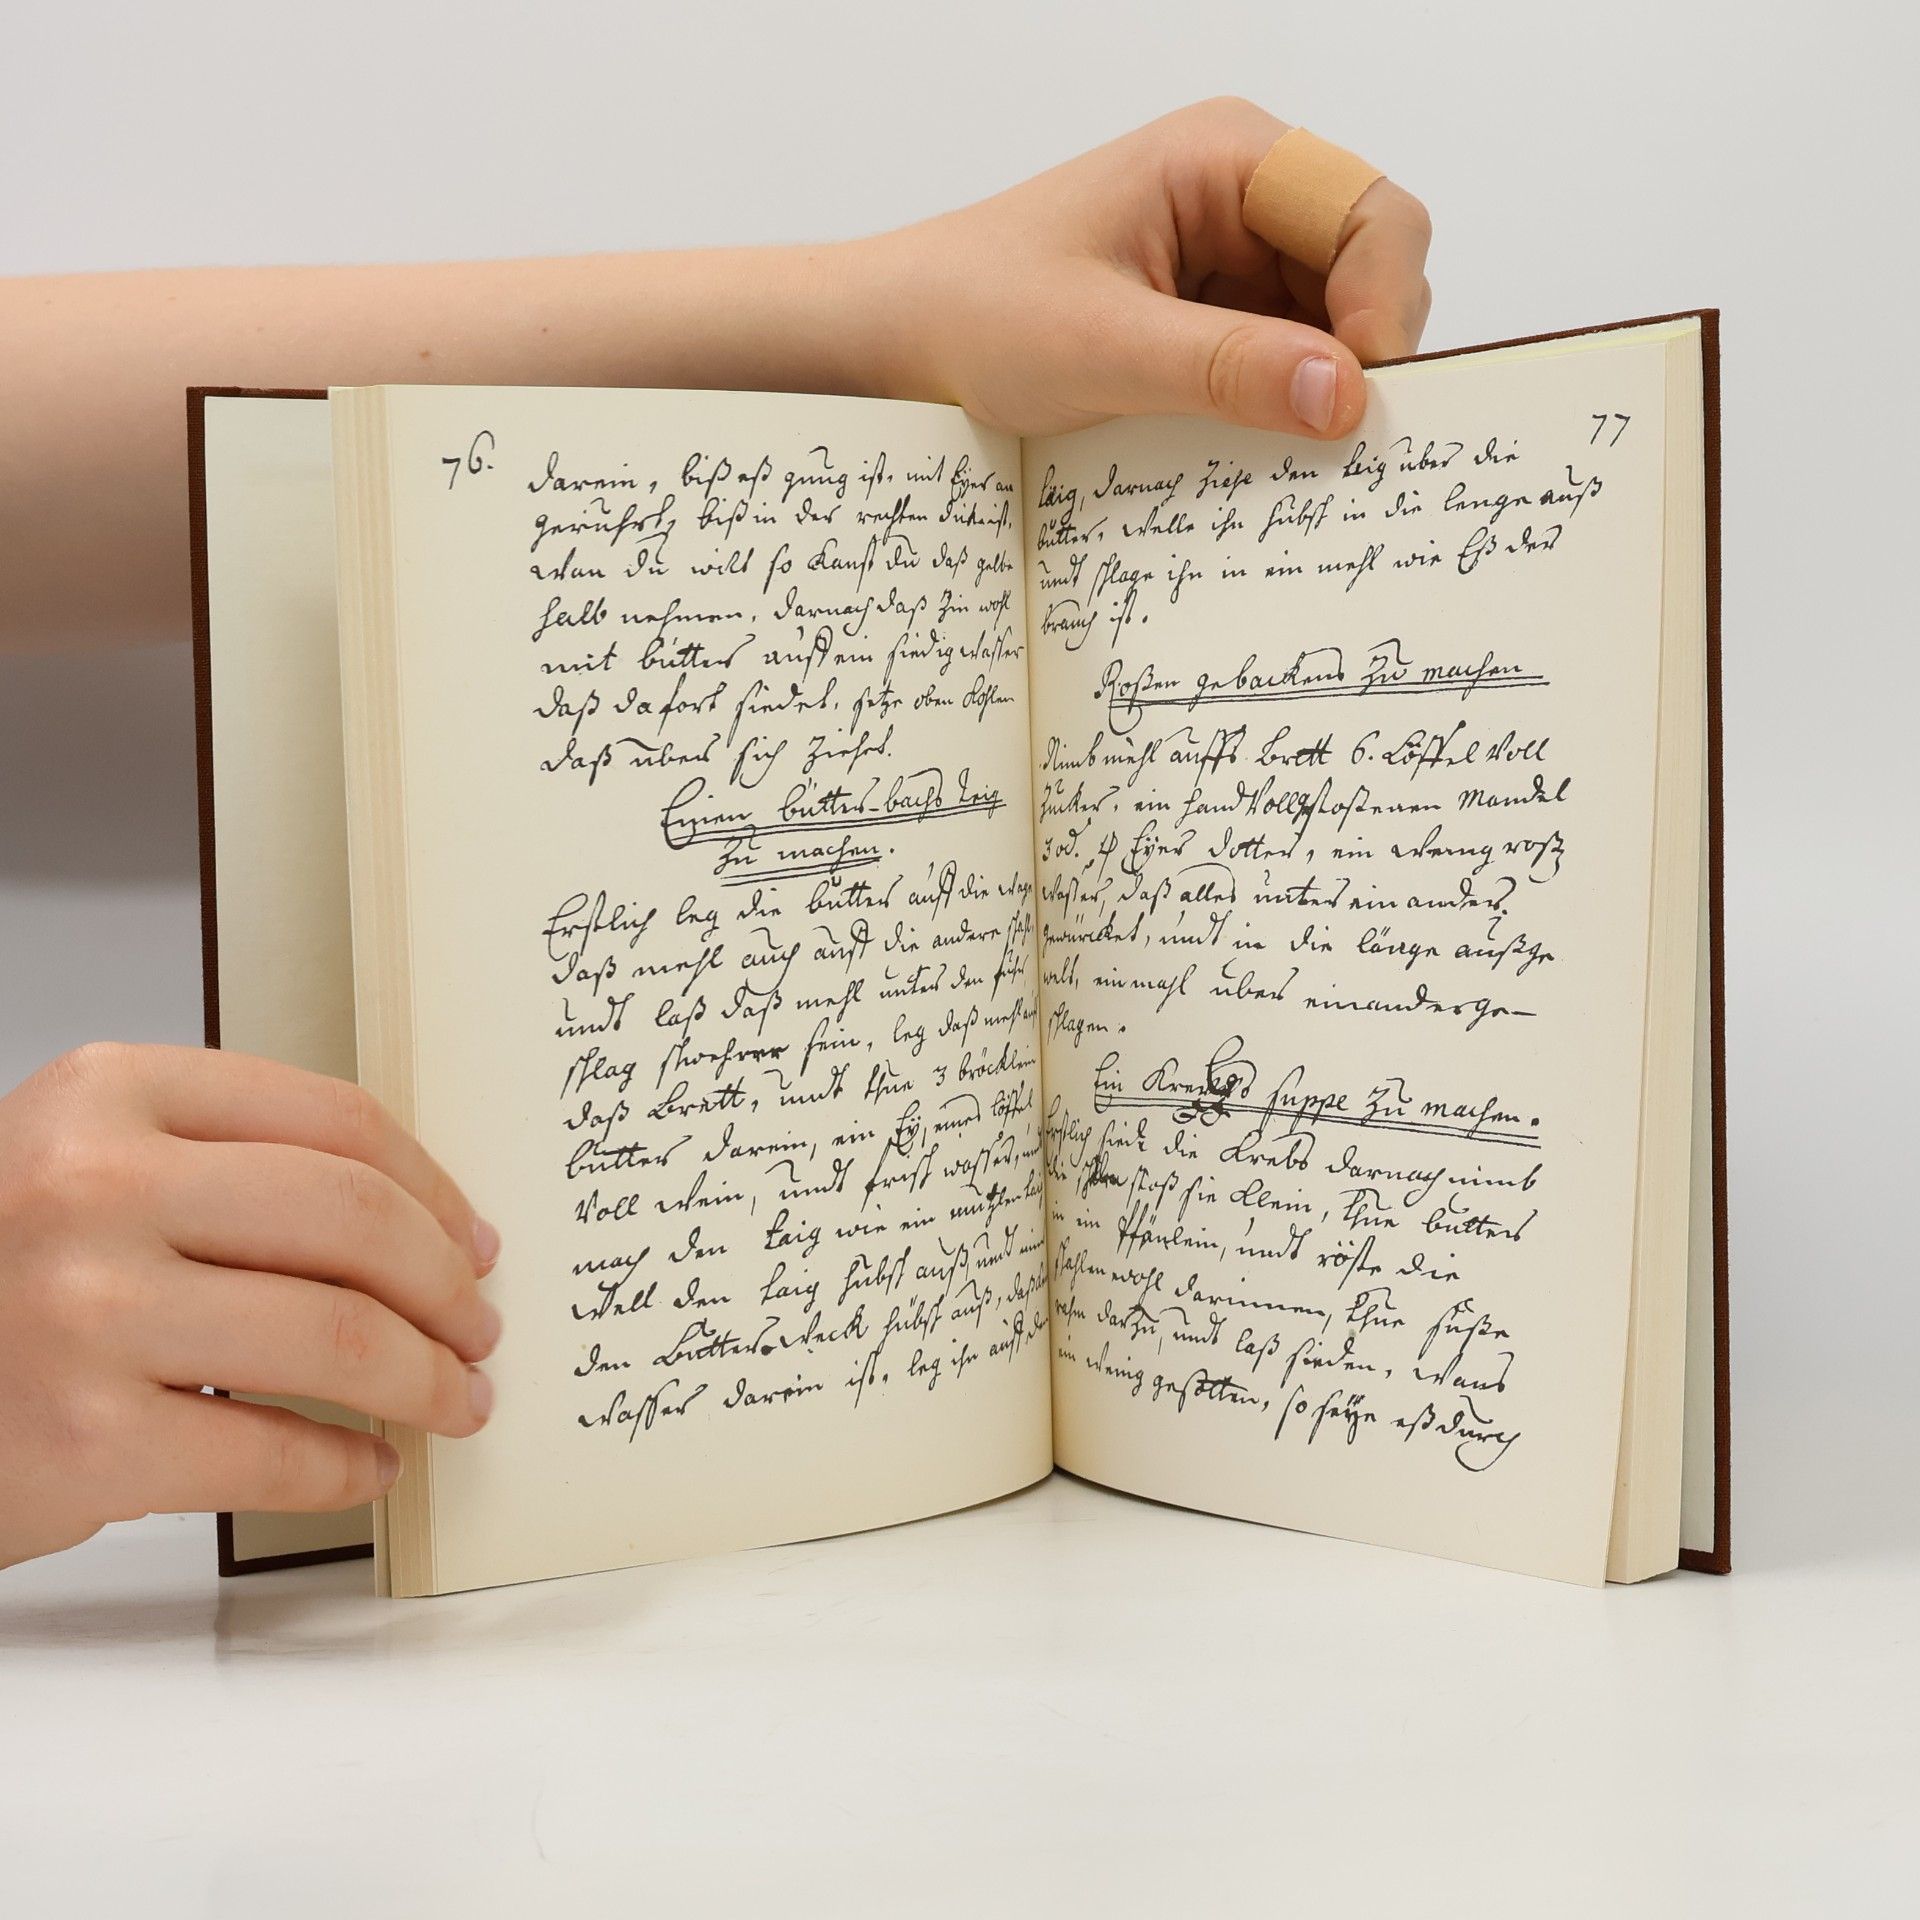 76.
darein, biß eß gnug ist, mit Eyer an
geruhrt, biß in der rechten dicke ist,
Wan du wilt so kanst du daß gelbe
halb nehmen, darnach daß Zin wohl
mit bütter auff ein siedig Wasser
daß da fort siedet, setze oben Kohlen
daß uber sich Ziehet.
Einen bütter-bachs Teig
Zu machen.
Erstlich leg die bütter auff die Wage
daß mehl auch auff die andere schahl,
undt laß daß mehl unter den
schlag schwehrer sein, leg daß mehl auff
daß Brett, undt thue 3 bröcklein
bütter darein, ein Ey, einen Löffel
Voll Wein, undt frisch wasser, und
mach den taig wie ein taig
Well den taig hübsch auß, undt nim
den Butter Weck hübsch auß, daß kein
Wasser darein ist, leg ihn auff den
77
taig, darnach Ziehe den taig uber die
bütter, Welle ihn hübsch in die lenge auß
undt schlage ihn in ein mehl wie Eß der
brauch ist.
Roßen gebackens Zu machen
Nimb mehl auffs Brett 6. Löffel Voll
Zucker, ein hand Voll gestoßenen Mandel
3 od. 4 Eyer dotter, ein Wenig roßen
Wasser, daß alles unter ein ander
gewürcket, undt in die länge außge
welt, ein mahl uber einander ge-
schlagen.
Ein Krebs suppe Zu machen.
Erstlich sied die Krebs darnach nimb
die schalen stoß sie klein, thue bütter
in ein Pfänlein, undt röste die
schahlen wohl darinnen, thue süße
rahm darzu, undt laß sieden, Wans
ein Wenig gesotten, so seye eß durch